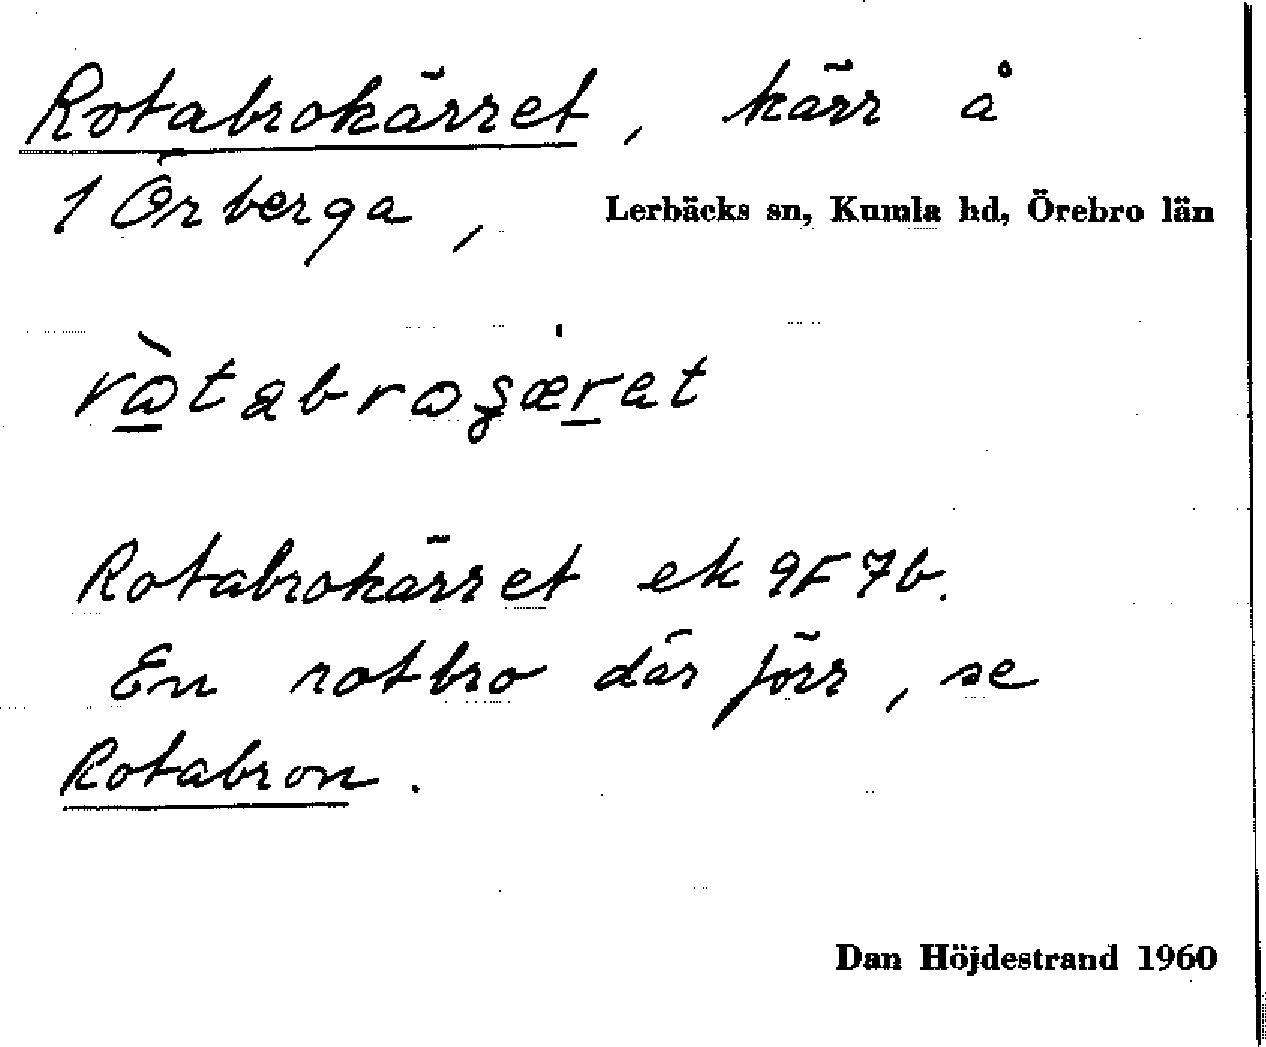 Rotabrokärret, kärr å
1 Örberga, Lerbäcks sn, Kumla hd, Örebro län
Rotabrokärret ek 9F 7b.
En rotbro där förr, se
Rotabron.
Dan Höjdestrand 1960